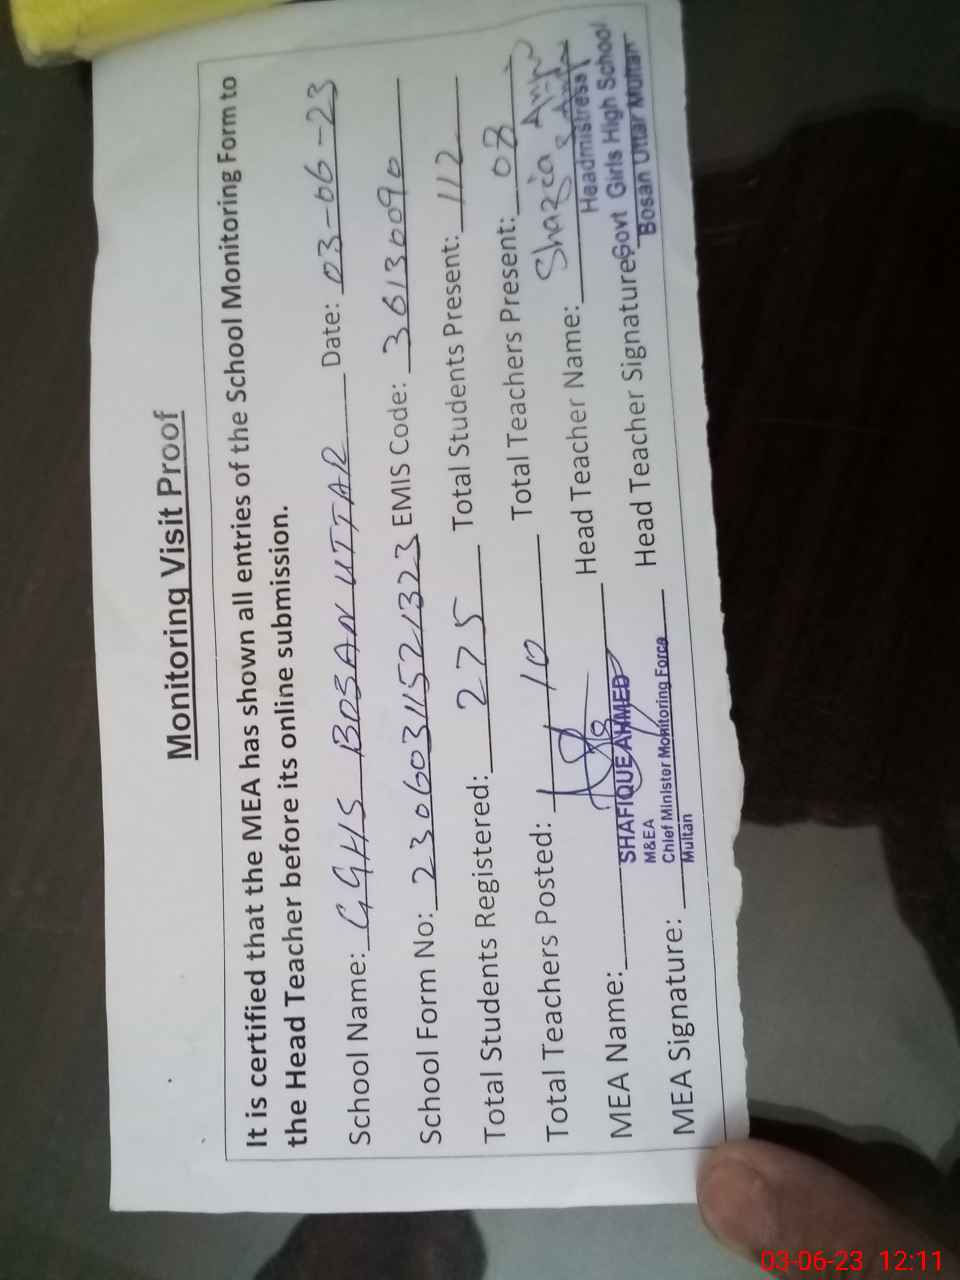 Monitoring Visit Proof
It is certified that the MEA has shown all entries of the School Monitoring Form to
the Head Teacher before its online submission.
School Name: GGHS BOSAN UTTAR Date: 03-06-23
School Form No: 23060311521323 EMIS Code: 36130090
Total Students Registered: 275 Total Students Present: 112
Total Teachers Posted: 10 Total Teachers Present: 08
MEA Name: SHAFIQUE AHMED Head Teacher Name: Shazia
M&EA
Chief Minister Monitoring Force
Multan
MEA Signature: Head Teacher Signature:
Headmistress
Govt Girls High School
Bosan Uttar Multan
03-06-23 12:11